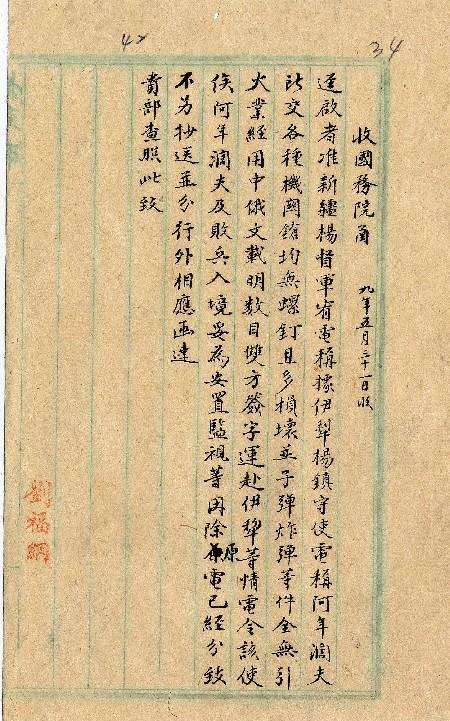 34
42
收國務院函 九年五月三十一日收
逕啟者准新疆楊督軍宥電稱據伊犁楊鎮守使電稱阿年濶夫
所交各種機關鎗均無螺釘且多損壞並子彈炸彈等件全無引
火業經用中俄文載明數目雙方簽字運赴伊犁等情電令該使
俟阿年濶夫及敗兵入境妥為安置監視等因除原電已經分致
不另抄送並分行外相應函達
貴部查照此致
劉福綱